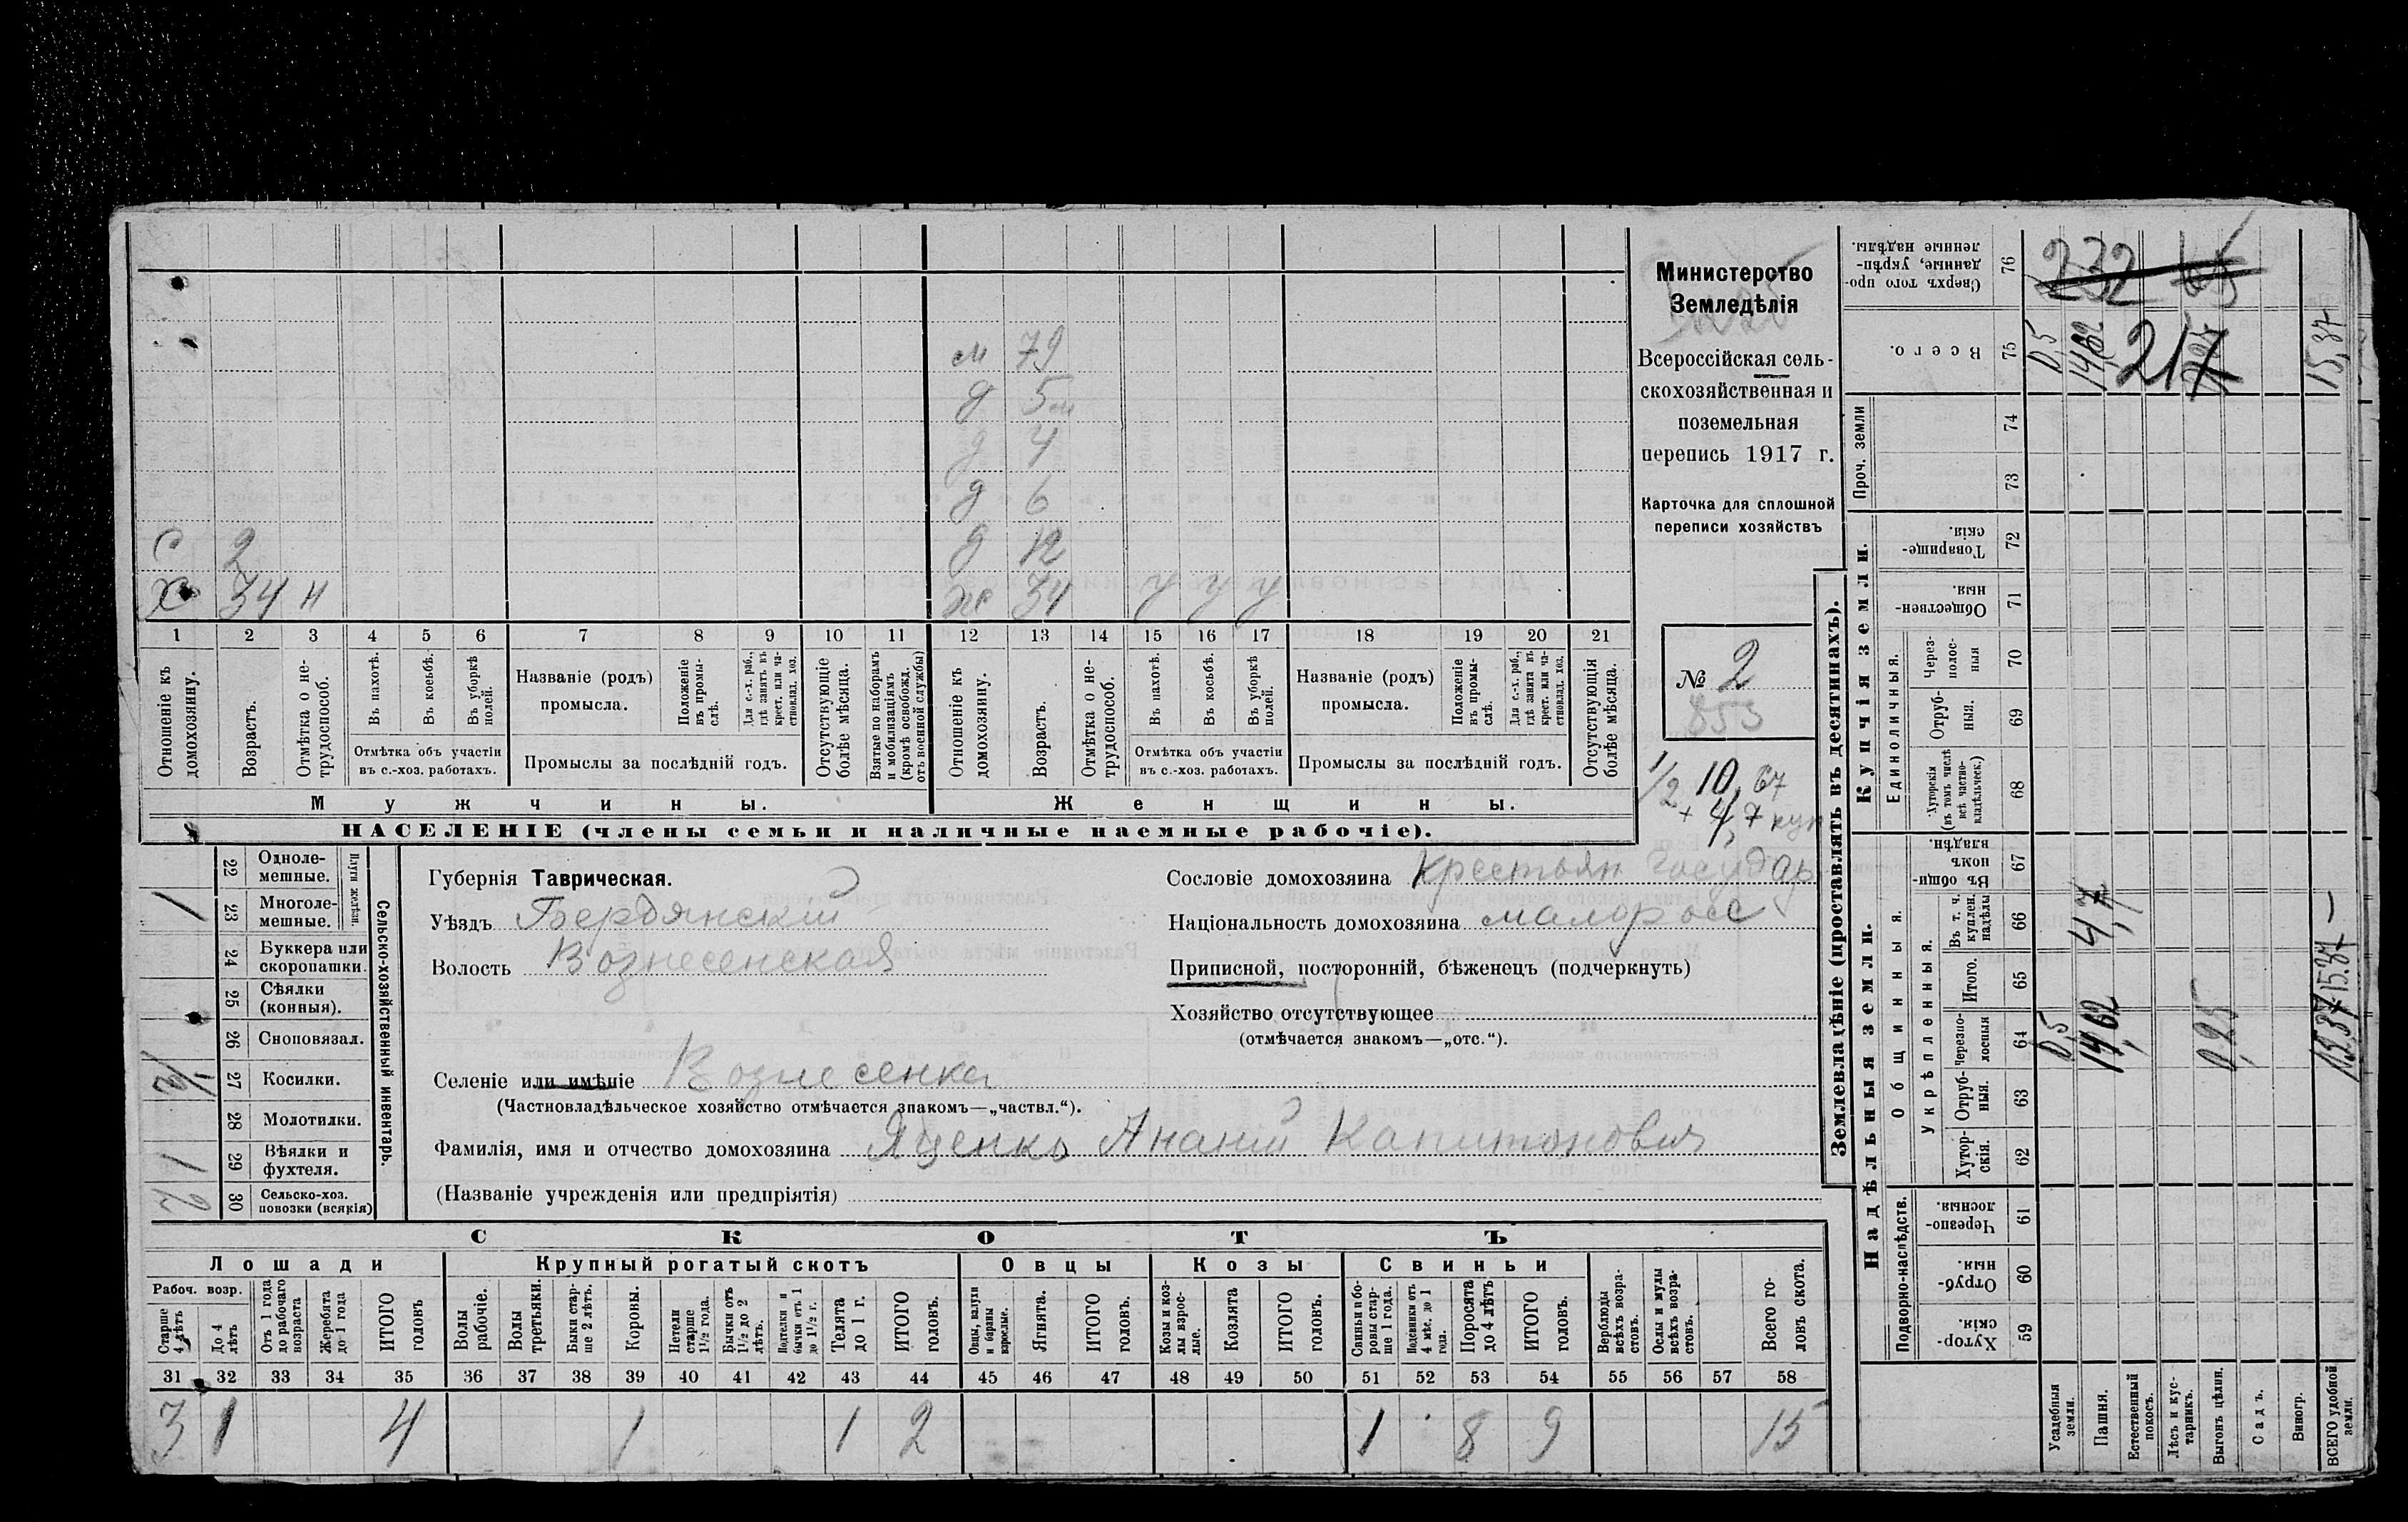 Министерство
Земледѣлія
Всероссійская сель-
скохозяйственная и
поземельная
перепись 1917 г.
Карточка для сплошной
переписи хозяйствъ
№ 2
853
1/2 10,67
+ 4,7 куп
м 79
д 5 м
д 4
д 6
С 2 д 12
Х 34 н ж 34 у у у
1 2 3 4 5 6 7 8 9 10 11 12 13 14 15 16 17 18 19 20 21
Отношеніе къ домохозяину.
Возрастъ.
Отмѣтка о не-трудоспособ.
Въ пахотѣ.
Въ косьбѣ.
Въ уборкѣ полей.
Отмѣтка объ участіи
въ с.-хоз. работахъ.
Названіе (родъ)
промысла.
Положеніе въ промы-слѣ.
Для с.-х. раб., гдѣ занятъ въ крест. или ча-стновлад. хоз.
Промыслы за послѣдній годъ.
Отсутствующіе болѣе мѣсяца.
Взятые по наборамъ и мобилизаціямъ (кромѣ освобожд. отъ военной службы)
Отношеніе къ домохозяину.
Возрастъ.
Отмѣтка о не-трудоспособ.
Въ пахотѣ.
Въ косьбѣ.
Въ уборкѣ полей.
Отмѣтка объ участіи
въ с.-хоз. работахъ.
Названіе (родъ)
промысла.
Положеніе въ промы-слѣ.
Для с.-х. раб., гдѣ занята въ крест. или ча-стновлад. хоз.
Промыслы за послѣдній годъ.
Отсутствующія болѣе мѣсяца.
Мужчины. Женщины.
НАСЕЛЕНІЕ (члены семьи и наличные наемные рабочіе).
Сельско-хозяйственный инвентарь.
Плуги желѣзн.
22 Одноле-мешные.
1 23 Многоле-мешные.
24 Буккера или скоропашки.
25 Сѣялки (конныя).
26 Сноповязал.
27 Косилки.
28 Молотилки.
1 29 Вѣялки и фухтеля.
2 30 Сельско-хоз. повозки (всякія)
Губернія Таврическая.
Уѣздъ Бердянскій
Волость Вознесенская
Сословіе домохозяина Крестьян государ
Національность домохозяина малоросс
Приписной, посторонній, бѣженецъ (подчеркнуть)
Хозяйство отсутствующее
(отмѣчается знакомъ—„отс.“).
Селеніе или имѣніе Вознесенка
(Частновладѣльческое хозяйство отмѣчается знакомъ—„частвл.“).
Фамилія, имя и отчество домохозяина Яценко Ананій Капитонович
(Названіе учрежденія или предпріятія)
СКОТЪ
Лошади Крупный рогатый скотъ Овцы Козы Свиньи
Рабоч. возр.
Старше 4 лѣтъ
До 4 лѣтъ
Отъ 1 года до рабочаго возраста
Жеребята до 1 года
ИТОГО головъ
Волы рабочіе.
Волы третьяки.
Быки стар-ше 2 лѣтъ.
Коровы.
Нетели старше 1½ года.
Бычки отъ 1½ до 2 лѣтъ.
Подтелки и бычки отъ 1 до 1½ г.
Телята до 1 г.
ИТОГО головъ.
Овцы, валухи и бараны взрослые.
Ягнята.
ИТОГО головъ.
Козы и коз-лы взрос-лые.
Козлята
ИТОГО головъ.
Свиньи и бо-ровы стар-ше 1 года.
Подсвинки отъ 4 мѣс. до 1 года.
Поросята до 4 лѣтъ
ИТОГО головъ.
Верблюды всѣхъ возра-стовъ.
Ослы и мулы всѣхъ возра-стовъ.
Всего го-ловъ скота.
31 32 33 34 35 36 37 38 39 40 41 42 43 44 45 46 47 48 49 50 51 52 53 54 55 56 57 58
3 1 4 1 1 2 1 8 9 15
Землевладѣніе (проставлять въ десятинахъ).
Надѣльныя земли. Купчія земли. Проч. земли
Подворно-наслѣдств.
Общинныя.
Укрѣпленныя.
Единоличныя.
59 Хутор-скія.
60 Отруб-ныя.
61 Черезпо-лосныя.
62 Хутор-скія.
63 Отруб-ныя.
64 Черезпо-лосныя
65 Итого.
66 Въ т. ч. куплен. надѣлы
67 Въ общин-номъ владѣн.
68 Хуторскія (въ томъ числѣ всѣ частно-владѣльческ.)
69 Отруб-ныя.
70 Через-полос-ныя
71 Обществен-ныя.
72 Товарище-скія.
73
74
75 Всего.
76 Сверхъ того про-данные, укрѣп-ленные надѣлы.
Усадебныя земли.
Пашня.
Естественный покосъ.
Лѣсъ и кус-тарникъ.
Выгонъ цѣлин.
Садъ.
Виногр.
ВСЕГО удобной земли.
0,5 14,62 0,25 15.37
4,7
0,5 14,62 15,37
217
232